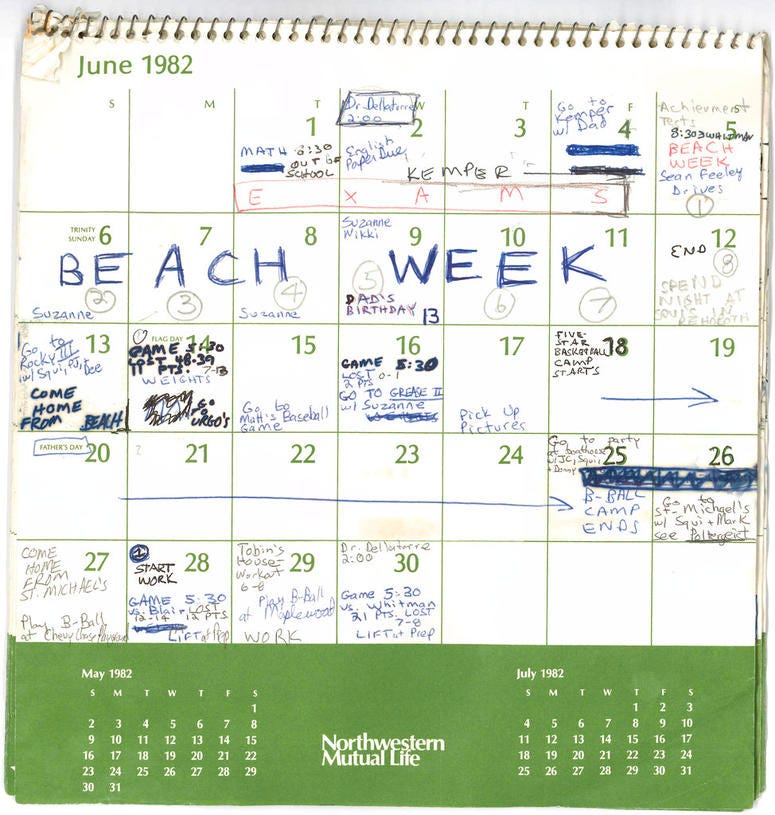 June 1982
S M T W T F S
1
MATH 8:30
OUT OF
SCHOOL
Dr. Dellatorre
2:00
2
English
Paper Due
3
KEMPER
E X A M S
Go to
Kemper
w/ Dad
4
Achievement
Tests
5
8:30
BEACH
WEEK
Sean Feeley
Drives
1
TRINITY
SUNDAY 6
7
8
Suzanne
Nikki
9
10
11
12
BEACH WEEK
END
2
3
4
5
6
7
8
Suzanne
Suzanne
DAD'S
BIRTHDAY
13
SPEND
NIGHT AT
SQUI'S IN
REHOBOTH
13
Go to
Rocky III
w/ Squi, PJ,
COME
HOME
FROM BEACH
FLAG DAY 14
GAME 5:30
LOST 48-39
11 PTS. 7-13
WEIGHTS
GO
TO
URGO'S
15
Go to
Matt's Baseball
Game
16
GAME 5:30
LOST 0-1
2 PTS
GO TO GREASE II
w/ Suzanne
17
Pick Up
Pictures
FIVE-
STAR
BASKETBALL
CAMP
STARTS
18
19
FATHER'S DAY
20
21
22
23
24
Go to party
at boathouse
w/ JC, Squi
+ Donny
25
B-BALL
CAMP
ENDS
26
Go to
St. Michael's
w/ Squi + Mark
see Poltergeist
27
COME
HOME
FROM
ST. MICHAEL'S
Play B-Ball
at Chevy Chase
28
1
START
WORK
GAME 5:30
vs. Blair LOST
12-14 12 PTS
LIFT at Prep
Tobin's
House
Workout
6-8
29
Play B-Ball
at Maplewood
WORK
Dr. Dellatorre
2:00
30
Game 5:30
vs. Whitman
21 PTS. LOST
7-8
LIFT at Prep
May 1982
S M T W T F S
1
2 3 4 5 6 7 8
9 10 11 12 13 14 15
16 17 18 19 20 21 22
23 24 25 26 27 28 29
30 31
Northwestern
Mutual Life
July 1982
S M T W T F S
1 2 3
4 5 6 7 8 9 10
11 12 13 14 15 16 17
18 19 20 21 22 23 24
25 26 27 28 29 30 31